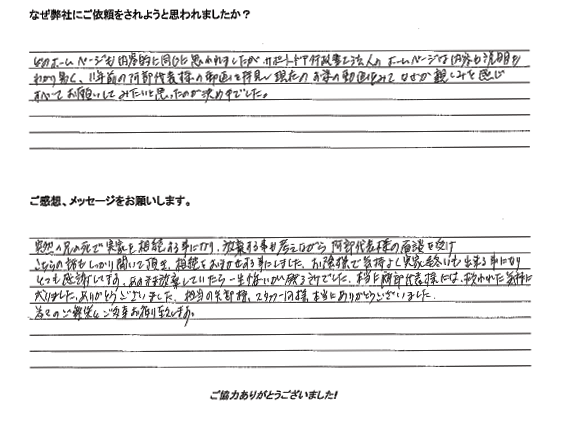 なぜ弊社にご依頼をされようと思われましたか？
他のホームページも内容的に同じと思われましたが、サポートドア行政書士法人のホームページは内容も説明も
わかり易く、11年前の阿部代表様の動画を拝見し現在のお姿の動画をみてなぜか親しみを感じ
すべてお願いしてみたいと思ったのが決め手でした。
ご感想、メッセージをお願いします。
突然の兄の死で実家を相続する事になり、放棄する事も考えながら阿部代表様の面談を受け
こちらの話もしっかり聞いて頂き、相続をおまかせする事にしました。お陰様で気持よく実家を終いも出来る事になり
とても感謝してます。あのまま放棄していたら一生悔いが残る所でした。本当に阿部代表様には、救われた気持に
なりました。ありがとうございました。担当の 様、スタッフ一同様、本当にありがとうございました。
益々のご繁栄とご多幸お祈り致します。
ご協力ありがとうございました!